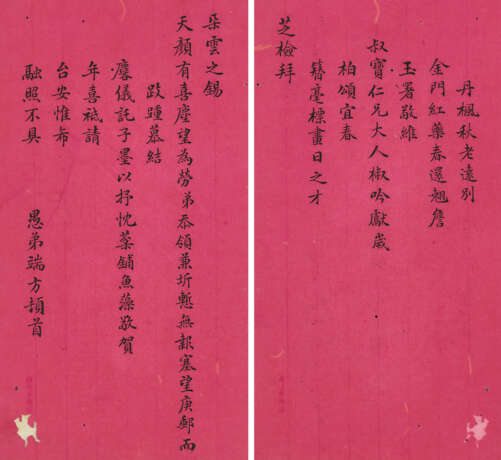 丹楓秋老遠別
金門紅藥春還翹詹
玉署敬維
叔寶仁兄大人椒吟獻歲
柏頌宜春
簪毫標畫日之才
芝檢拜
朵雲之錫
天顏有喜塵望為勞弟忝領兼圻慙無報塞望庚郵而
跂踵慕結
譍儀託子墨以抒忱藻鋪魚藻敬賀
年喜祗請
台安惟希
融照不具
愚弟端方頓首